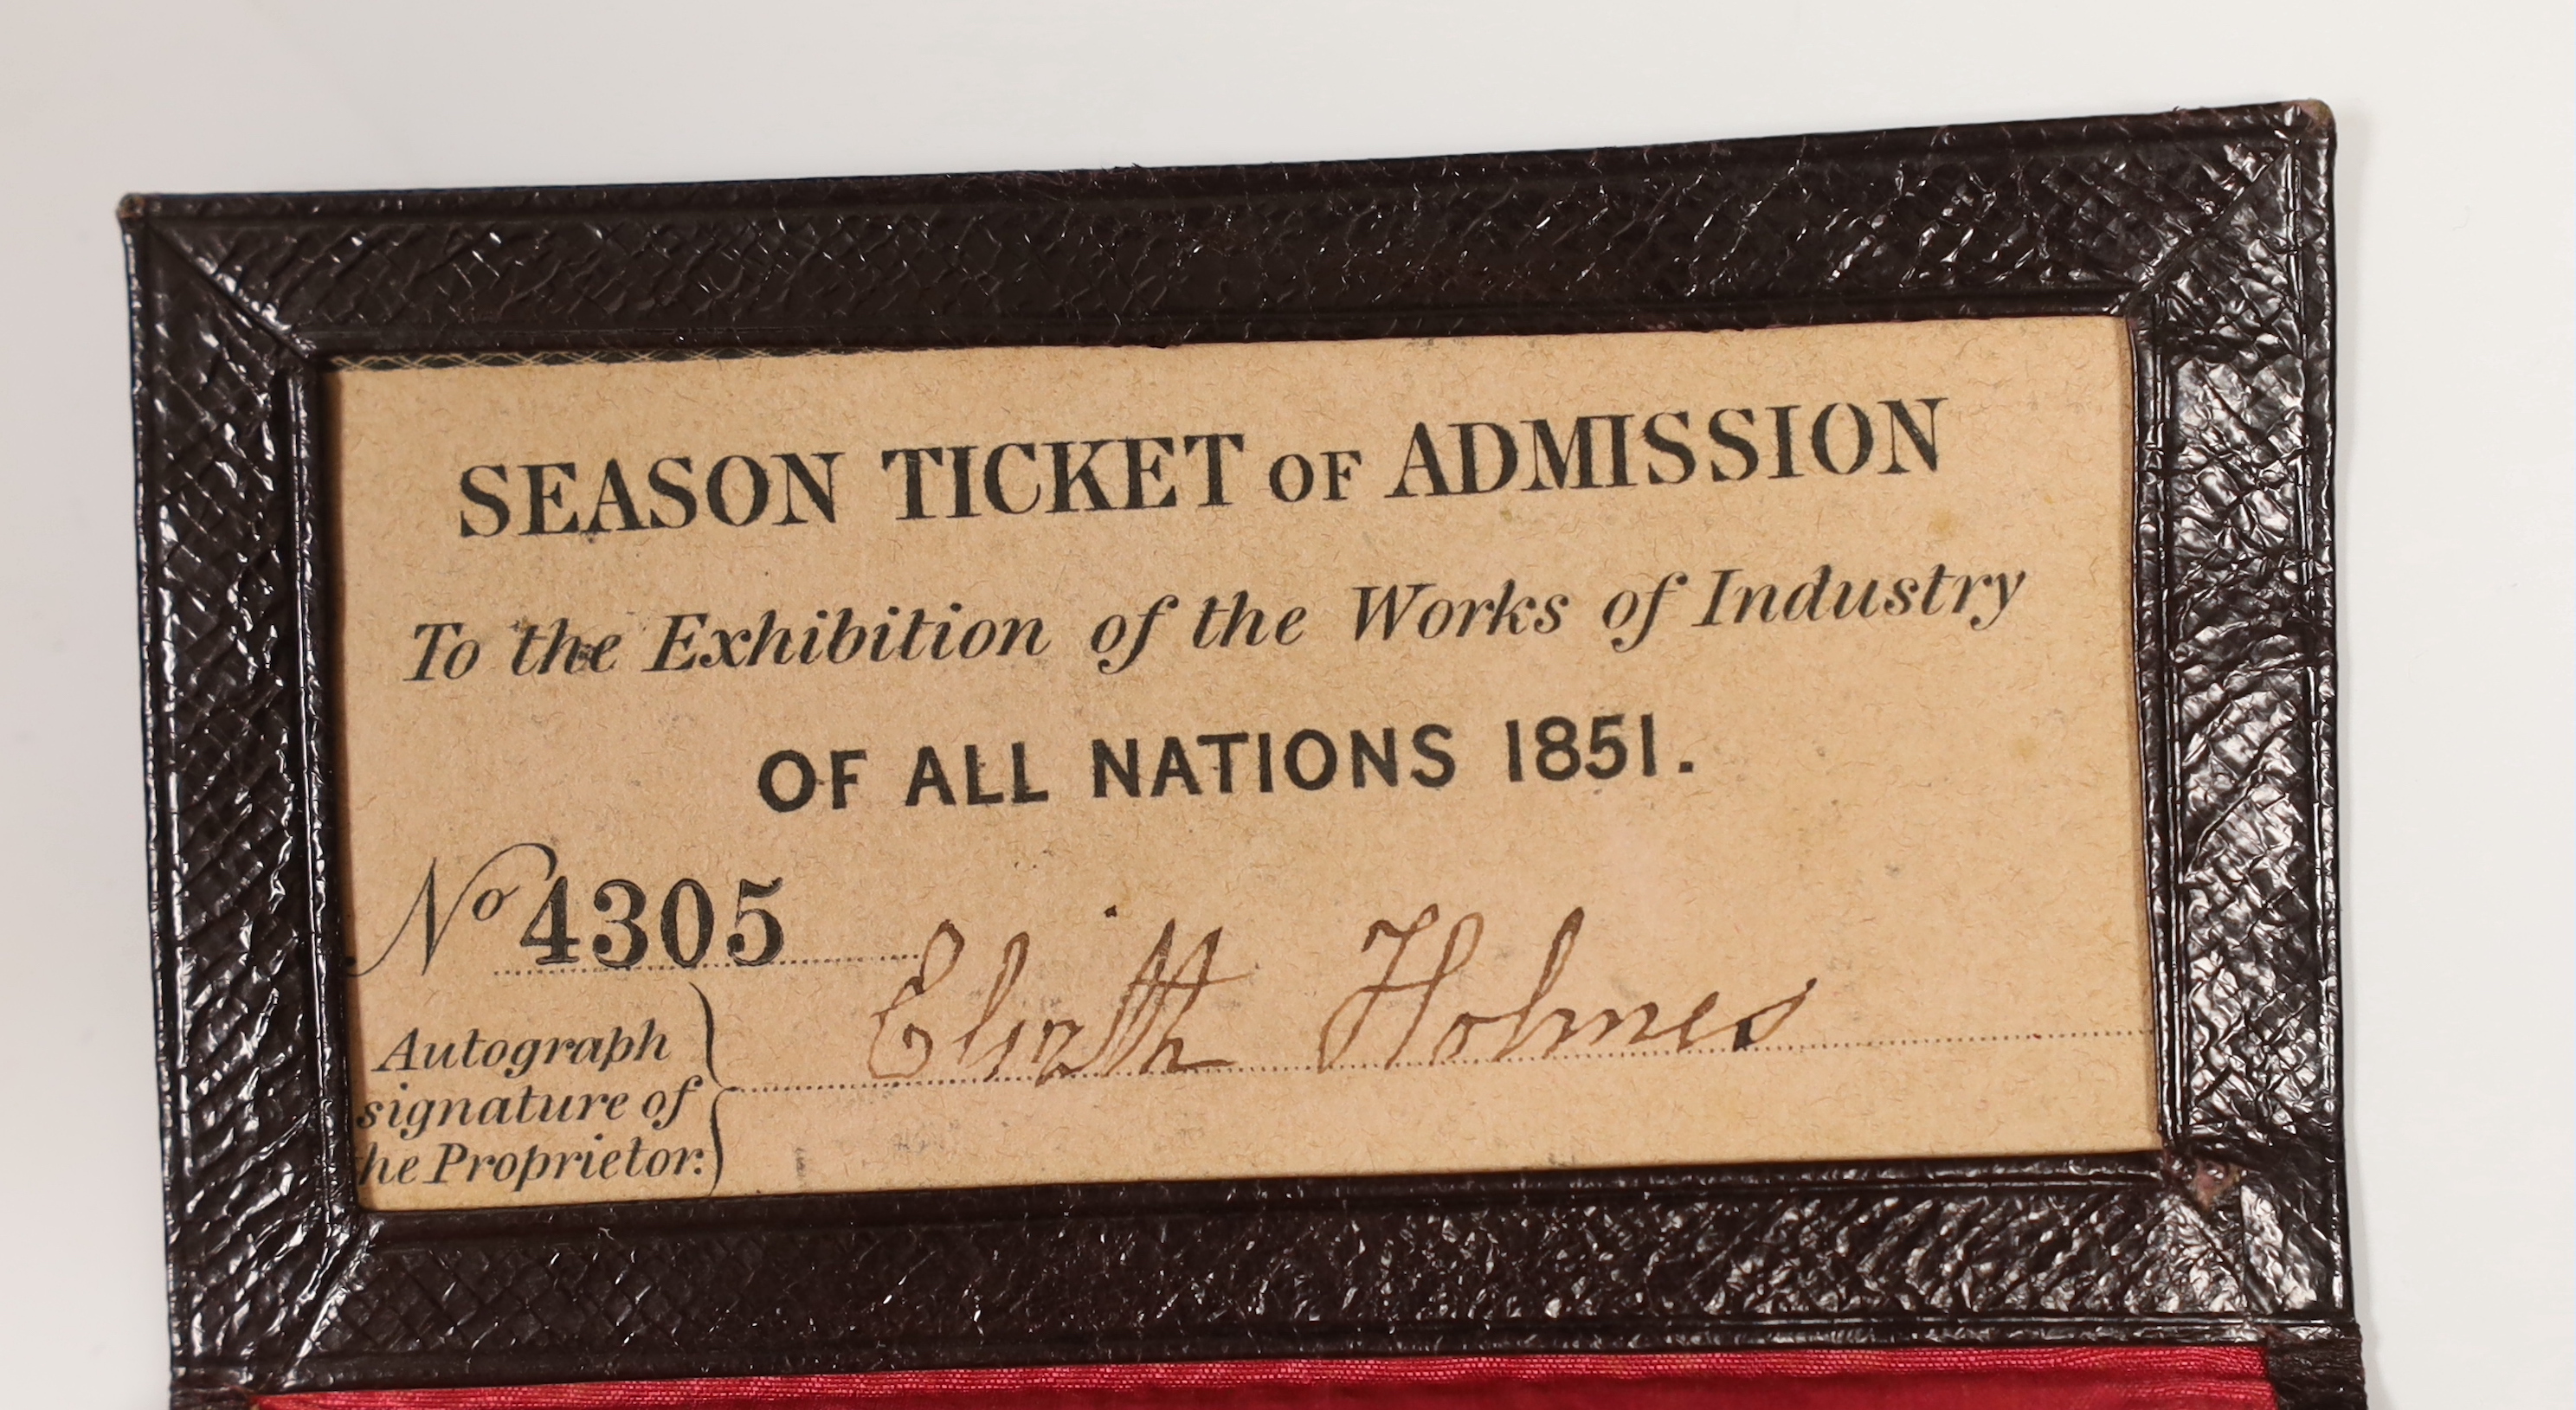 SEASON TICKET OF ADMISSION
To the Exhibition of the Works of Industry
OF ALL NATIONS 1851.
No 4305
Elizth Holmes
Autograph
signature of
the Proprietor.